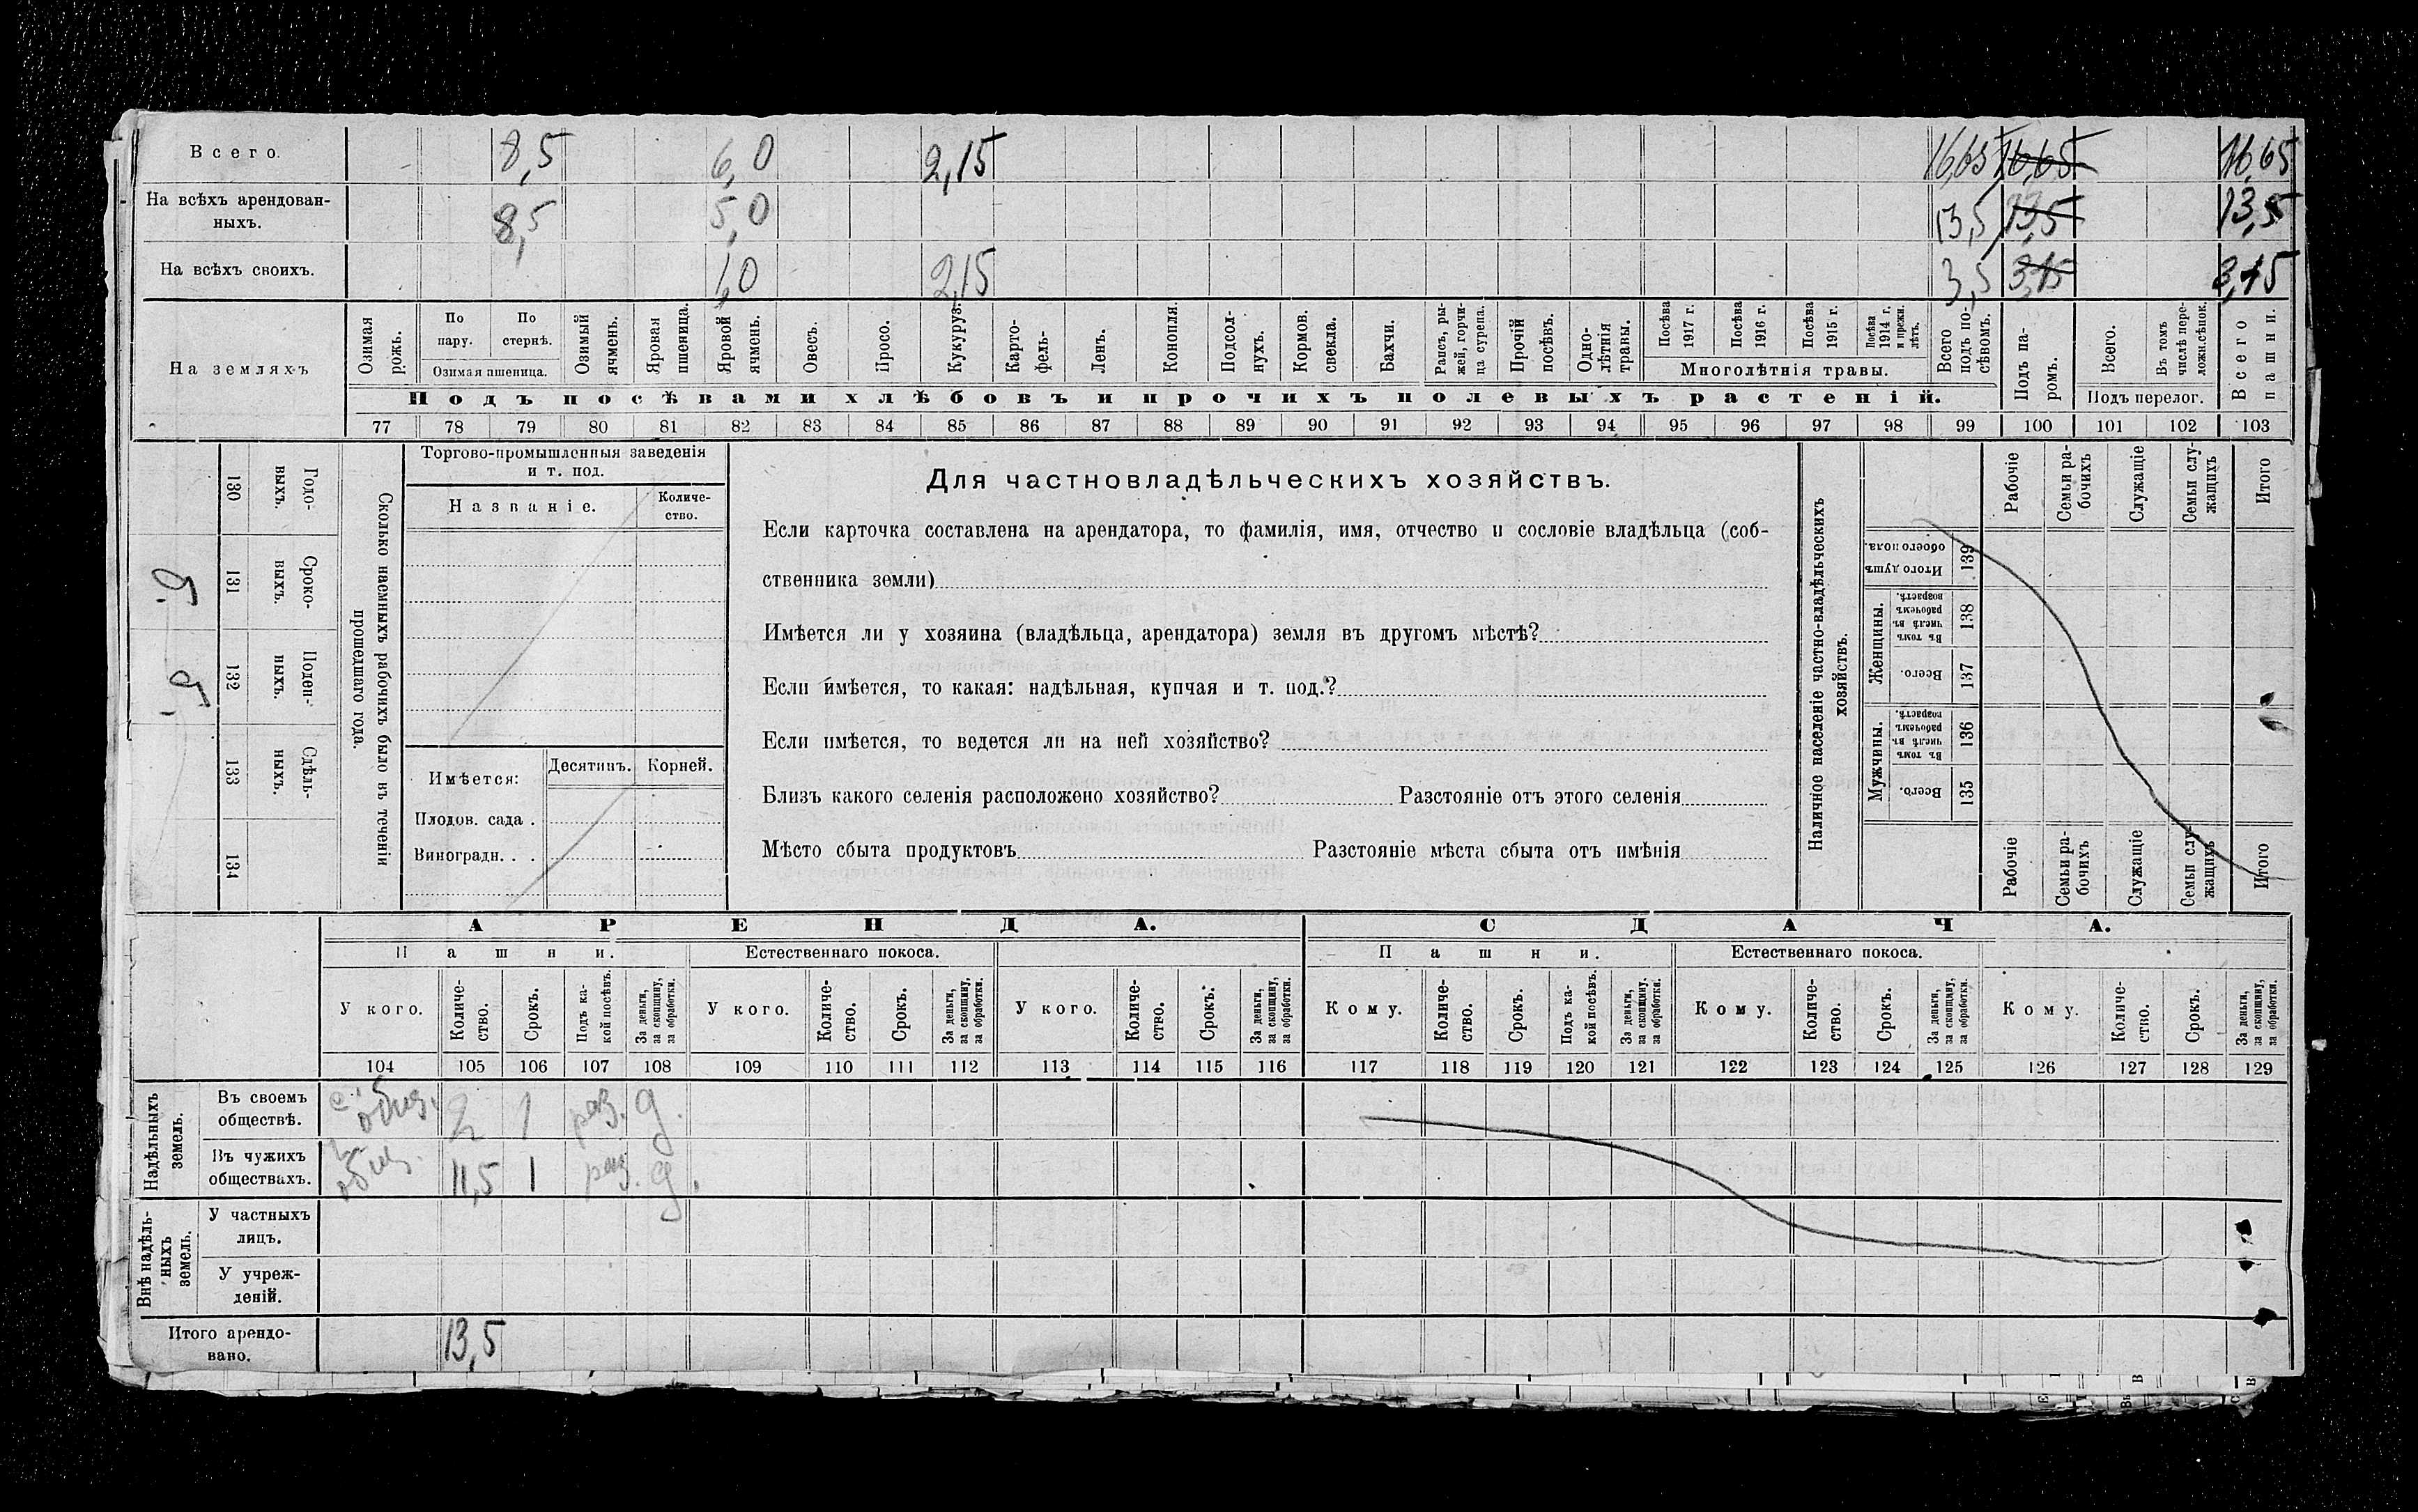 Всего. 8,5 6,0 2,15 16,65 16,65 16,65
На всѣхъ арендован-
ныхъ. 8,5 5,0 13,5 13,5 13,5
На всѣхъ своихъ. 1,0 2,15 3,5 3,15 3,15
На земляхъ
Озимая рожь.
По пару.
По стернѣ.
Озимая пшеница.
Озимый ячмень.
Яровая пшеница.
Яровой ячмень.
Овесъ.
Просо.
Кукуруз.
Карто-
фель.
Ленъ.
Конопля.
Подсол-
нухъ.
Кормов. свекла.
Бахчи.
Рапсъ, ры-
жей, горчи-
ца сурепа.
Прочій посѣвъ.
Одно-
лѣтнія травы.
Посѣва 1917 г.
Посѣва 1916 г.
Посѣва 1915 г.
Посѣва 1914 г. и прежн. лѣтъ.
Многолѣтнія травы.
Всего подъ по-
сѣвомъ.
Подъ па-
ромъ.
Всего.
Въ томъ числѣ пере-
ложн. сѣнок.
Подъ перелог.
Всего пашни.
Подъ посѣвами хлѣбовъ и прочихъ полевыхъ растеній.
77 78 79 80 81 82 83 84 85 86 87 88 89 90 91 92 93 94 95 96 97 98 99 100 101 102 103
Сколько наемныхъ рабочихъ было въ теченіи
прошедшаго года.
Годо-
выхъ.
130
Сроко-
ныхъ.
131
Поден-
ныхъ.
132
Сдѣль-
ныхъ.
133
134
Торгово-промышленныя заведенія
и т. под.
Названіе.
Количе-
ство.
Имѣется:
Десятинъ.
Корней.
Плодов. сада .
Виноградн. . .
Для частновладѣльческихъ хозяйствъ.
Если карточка составлена на арендатора, то фамилія, имя, отчество и сословіе владѣльца (соб-
ственника земли)
Имѣется ли у хозяина (владѣльца, арендатора) земля въ другомъ мѣстѣ?
Если имѣется, то какая: надѣльная, купчая и т. под.?
Если имѣется, то ведется ли на ней хозяйство?
Близъ какого селенія расположено хозяйство? Разстояніе отъ этого селенія
Мѣсто сбыта продуктовъ Разстояніе мѣста сбыта отъ имѣнія
Наличное населеніе частно-владѣльческихъ
хозяйствъ.
Рабочіе
Семьи ра-
бочихъ
Служащіе
Семьи слу-
жащихъ
Итого
Итого душъ
обоего пола.
139
Женщины.
Въ томъ числѣ въ рабочемъ возрастѣ.
138
Всего.
137
Мужчины.
Въ томъ числѣ въ рабочемъ возрастѣ.
136
Всего.
135
Рабочіе
Семьи ра-
бочихъ
Служащіе
Семьи слу-
жащихъ
Итого
АРЕНДА. СДАЧА.
Пашни. Естественнаго покоса. Пашни. Естественнаго покоса.
У кого. Количе-
ство. Срокъ. Подъ ка-
кой посѣвъ. За деньги, за скопщину, за обработки. У кого. Количе-
ство. Срокъ. За деньги, за скопщину, за обработки. У кого. Количе-
ство. Срокъ. За деньги, за скопщину, за обработки. Кому. Количе-
ство. Срокъ. Подъ ка-
кой посѣвъ. За деньги, за скопщину, за обработки. Кому. Количе-
ство. Срокъ. За деньги, за скопщину, за обработки. Кому. Количе-
ство. Срокъ. За деньги, за скопщину, за обработки.
104 105 106 107 108 109 110 111 112 113 114 115 116 117 118 119 120 121 122 123 124 125 126 127 128 129
Надѣльныхъ
земель.
Въ своемъ
обществѣ. 2 1 раз. д.
Въ чужихъ
обществахъ. 11,5 1 раз. д.
Внѣ надѣль-
ныхъ
земель.
У частныхъ
лицъ.
У учреж-
деній.
Итого арендо-
вано. 13,5